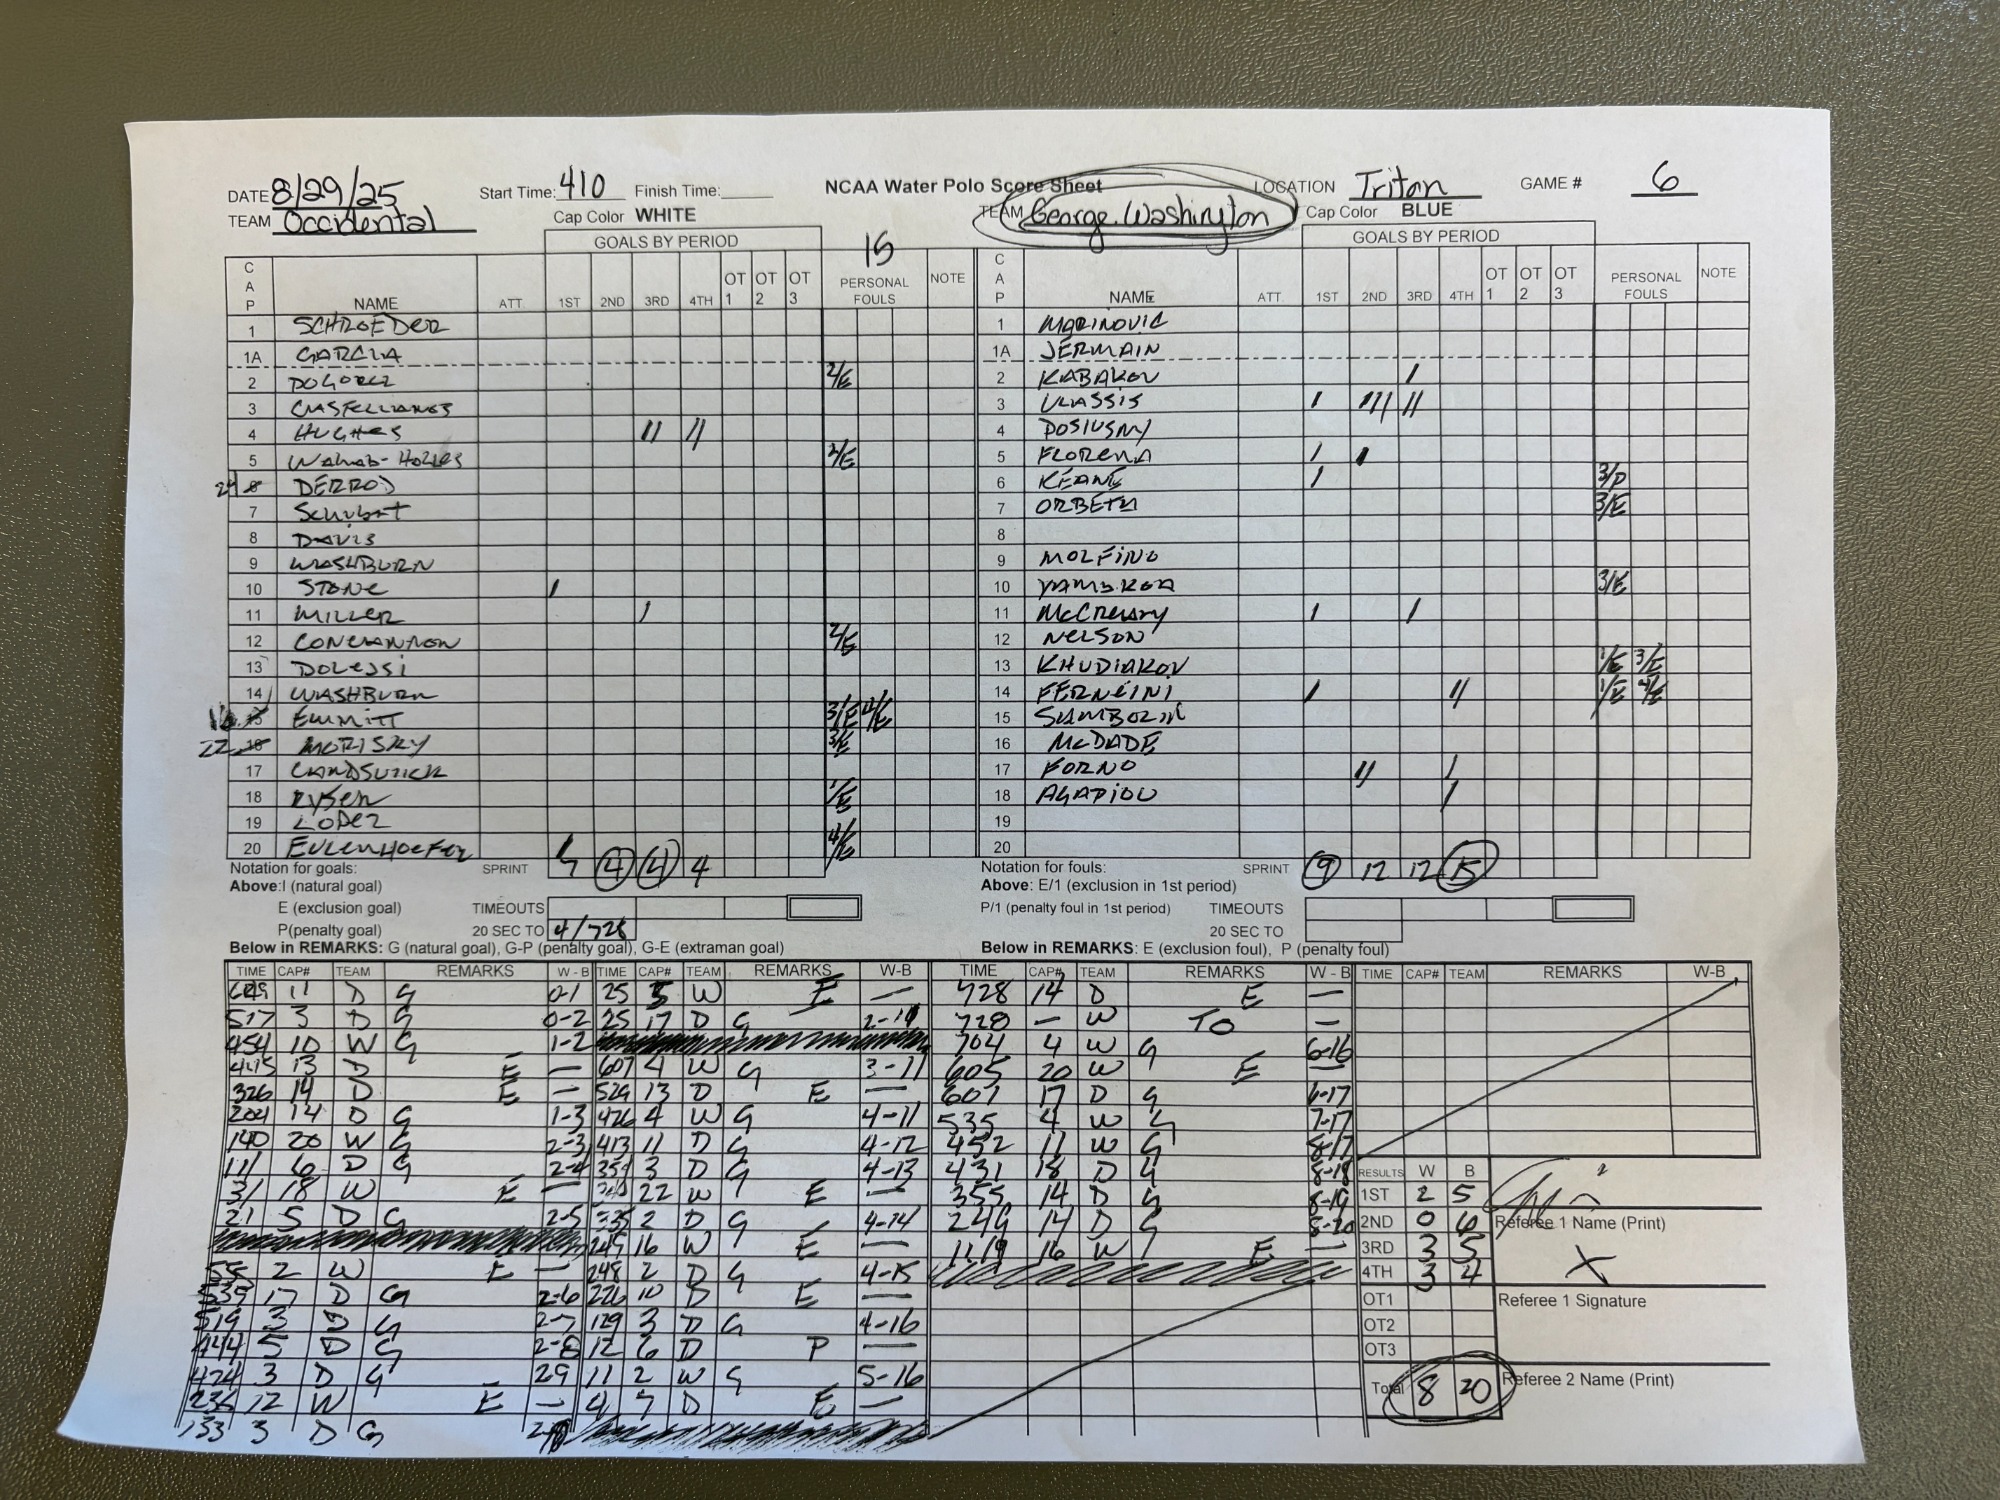 DATE 8/29/25 Start Time: 410 Finish Time: NCAA Water Polo Score Sheet LOCATION Triton GAME # 6
TEAM Occidental Cap Color WHITE TEAM George Washington Cap Color BLUE
GOALS BY PERIOD 15 GOALS BY PERIOD
CAP NAME ATT. 1ST 2ND 3RD 4TH OT 1 OT 2 OT 3 PERSONAL FOULS NOTE CAP NAME ATT. 1ST 2ND 3RD 4TH OT 1 OT 2 OT 3 PERSONAL FOULS NOTE
1 SCHROEDER 1 MARINOVIC
1A GARCIA 1A JERMAIN
2 2/E 2 KABAKOV I
3 CASTELLANOS 3 VLASSIS I IIII II
4 HUGHES II II 4
5 2/E 5 FLORENA I I
24 6 DERROD 6 KEANE I 3/P
7 Schubert 7 ORBETA 3/E
8 DAVIS 8
9 WASHBURN 9 MOLFINO
10 STONE I 10 3/E
11 MILLER I 11 McCreary I I
12 2/E 12 NELSON
13 DOLESSI 13 KHUDIAKOV 1/E 3/E
14 WASHBURN 14 FERNEINI I II 1/E 4/E
16 15 EMMITT 3/E 4/E 15
22 16 MORISKY 3/E 16 McDADE
17 17 FORNO II I
18 1/E 18 AGAPIOU I
19 LOPEZ 19
20 EULENHOEFER 4/E 20
Notation for goals: SPRINT 4 4 4 4 Notation for fouls: SPRINT 9 12 12 15
Above: I (natural goal) Above: E/1 (exclusion in 1st period)
E (exclusion goal) TIMEOUTS P/1 (penalty foul in 1st period) TIMEOUTS
P(penalty goal) 20 SEC TO 4/728 20 SEC TO
Below in REMARKS: G (natural goal), G-P (penalty goal), G-E (extraman goal) Below in REMARKS: E (exclusion foul), P (penalty foul)
TIME CAP# TEAM REMARKS W - B TIME CAP# TEAM REMARKS W-B TIME CAP# TEAM REMARKS W - B TIME CAP# TEAM REMARKS W-B
11 D G 0-1 25 5 W E — 728 14 D E —
517 3 D G 0-2 25 17 D G 728 — W TO —
454 10 W G 1-2 704 4 W G 6-16
445 13 D E — 607 4 W G 3-11 605 20 W E —
326 14 D E — 529 13 D E — 601 17 D G 6-17
204 14 D G 1-3 426 4 W G 4-11 535 4 W G 7-17
140 20 W G 2-3 413 11 D G 4-12 452 11 W G 8-17
111 6 D G 2-4 351 3 D G 4-13 431 18 D G 8-18
31 18 W E — 22 W E — 355 14 D G 8-19
21 5 D G 2-5 335 2 D G 4-14 249 14 D G 8-20
245 16 W E — 119 16 W E —
55 2 W E — 248 2 D G 4-15
539 17 D G 2-6 226 10 D E —
519 3 D G 2-7 129 3 D G 4-16
444 5 D G 2-8 12 6 D P —
424 3 D G 29 11 2 W G 5-16
236 12 W E — 9 7 D E —
133 3 D G
RESULTS W B
1ST 2 5
2ND 0 6 Referee 1 Name (Print)
3RD 3 5
4TH 3 4 X
OT1 Referee 1 Signature
OT2
OT3
Total 8 20 Referee 2 Name (Print)